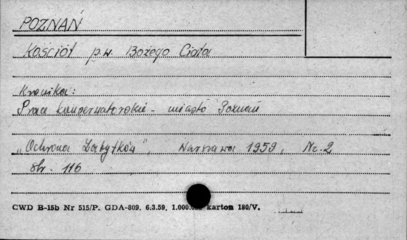 POZNAŃ
Kościół p.w. Bożego Ciała
Kronika:
Prace konserwatorskie - miasto Poznań
"Ochrona Zabytków", Warszawa 1959, Nr. 2
str. 116
CWD B-15b Nr 515/P. GDA-809. 6.3.59. 1.000.000 karton 180/V.